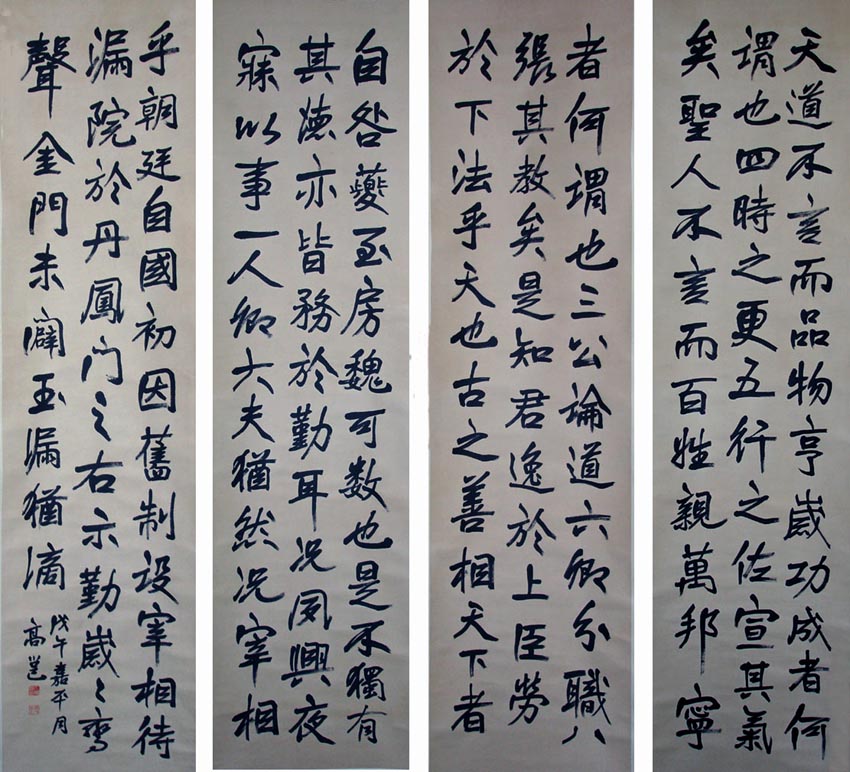 天道不言而品物亨歲功成者何
謂也四時之更五行之佐宣其氣
矣聖人不言而百姓親萬邦寧
者何謂也三公論道六卿分職八
張其教矣是知君逸於上臣勞
於下法乎天也古之善相天下者
自咎夔至房魏可数也是不獨有
其德亦皆務於勤耳况夙興夜
寐以事一人卿大夫猶然况宰相
乎朝廷自國初因舊制設宰相待
漏院於丹鳳门之右示勤歲々鸾
聲金門未闢玉漏猶滴
戊午嘉平月
高邕